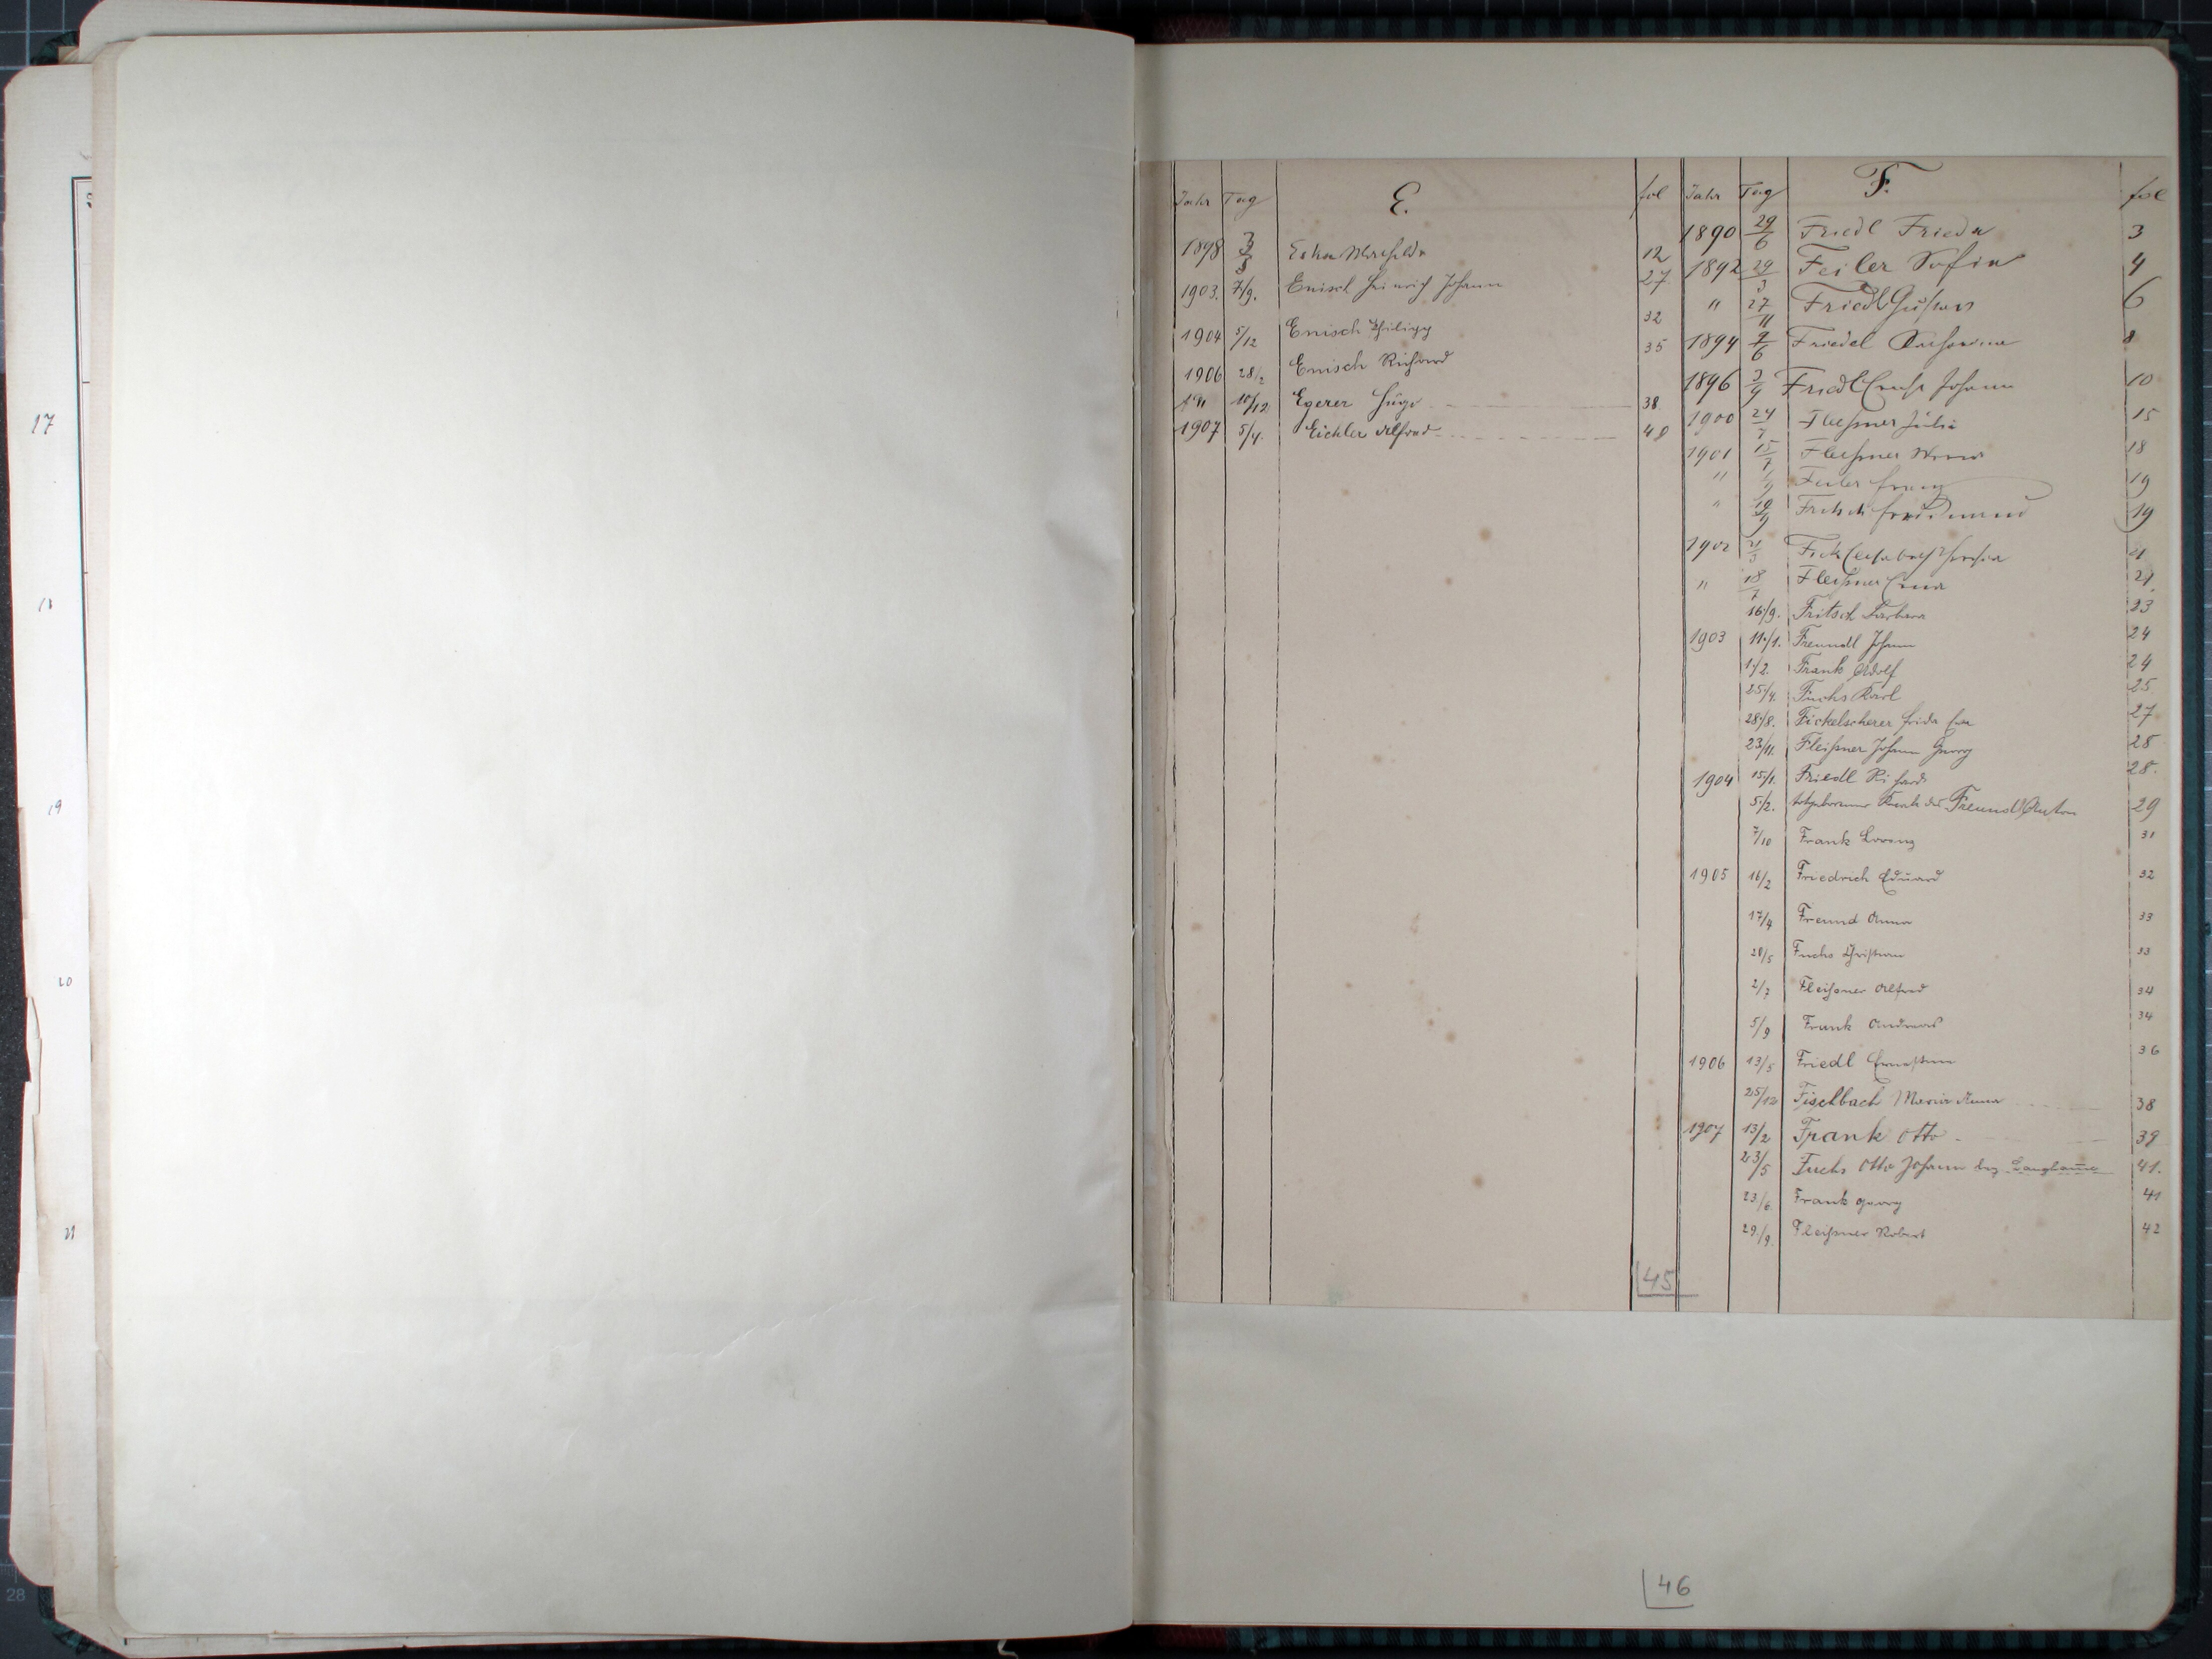 17
18
19
20
21
Jahr Tag E. fol
1898 3/5 12
1903. 7/9. Enisch Heinrich Johann 27
1904 5/12 Enisch Philipp 32
1906 28/2 Enisch Richard 35
" 10/12 Egerer Hugo 38
1907 5/4. Eichler Alfred 40
45
Jahr Tag F. fol
1890 29/6 Friedl Frieda 3
1892 29/3 Feiler Sofia 4
" 27/11 Friedl Gustav 6
1894 7/6 Friedel 8
1896 3/9 Friedl Ernst Johann 10
1900 24/7 Fleißner Julie 15
1901 15/7 Fleißner 18
" Feiler Franz 19
" 19/9 Fritsch Ferdinand 19
1902 21/3 Fick 21
" 18/7 Fleißner Erna 21.
16./9. Fritsch Barbara 23
1903 11./1. Freundl Johann 24
1./2. Frank Adolf 24
25./4. Fuchs Karl 25
28./8. Fickelscherer Frida Eva 27
23/11. Fleißner Johann Georg 28
1904 15/1. Friedl Richard 28.
5./2. totgeborener Knabe des Freundl Anton 29
7/10 Frank Lorenz 31
1905 16/2 Friedrich Eduard 32
17/4 Freund Anna 33
20/5 Fuchs Christian 33
2/7 Fleißner Alfred 34
5/9 Frank Andreas 34
1906 13/5 Friedl Ernestine 36
25/12 Fischbach Maria Anna 38
1907 13/2 Frank Otto 39
23/5 Fuchs Otto Johann 41.
23./6. Frank Georg 41
29./9. Fleißner Robert 42
46